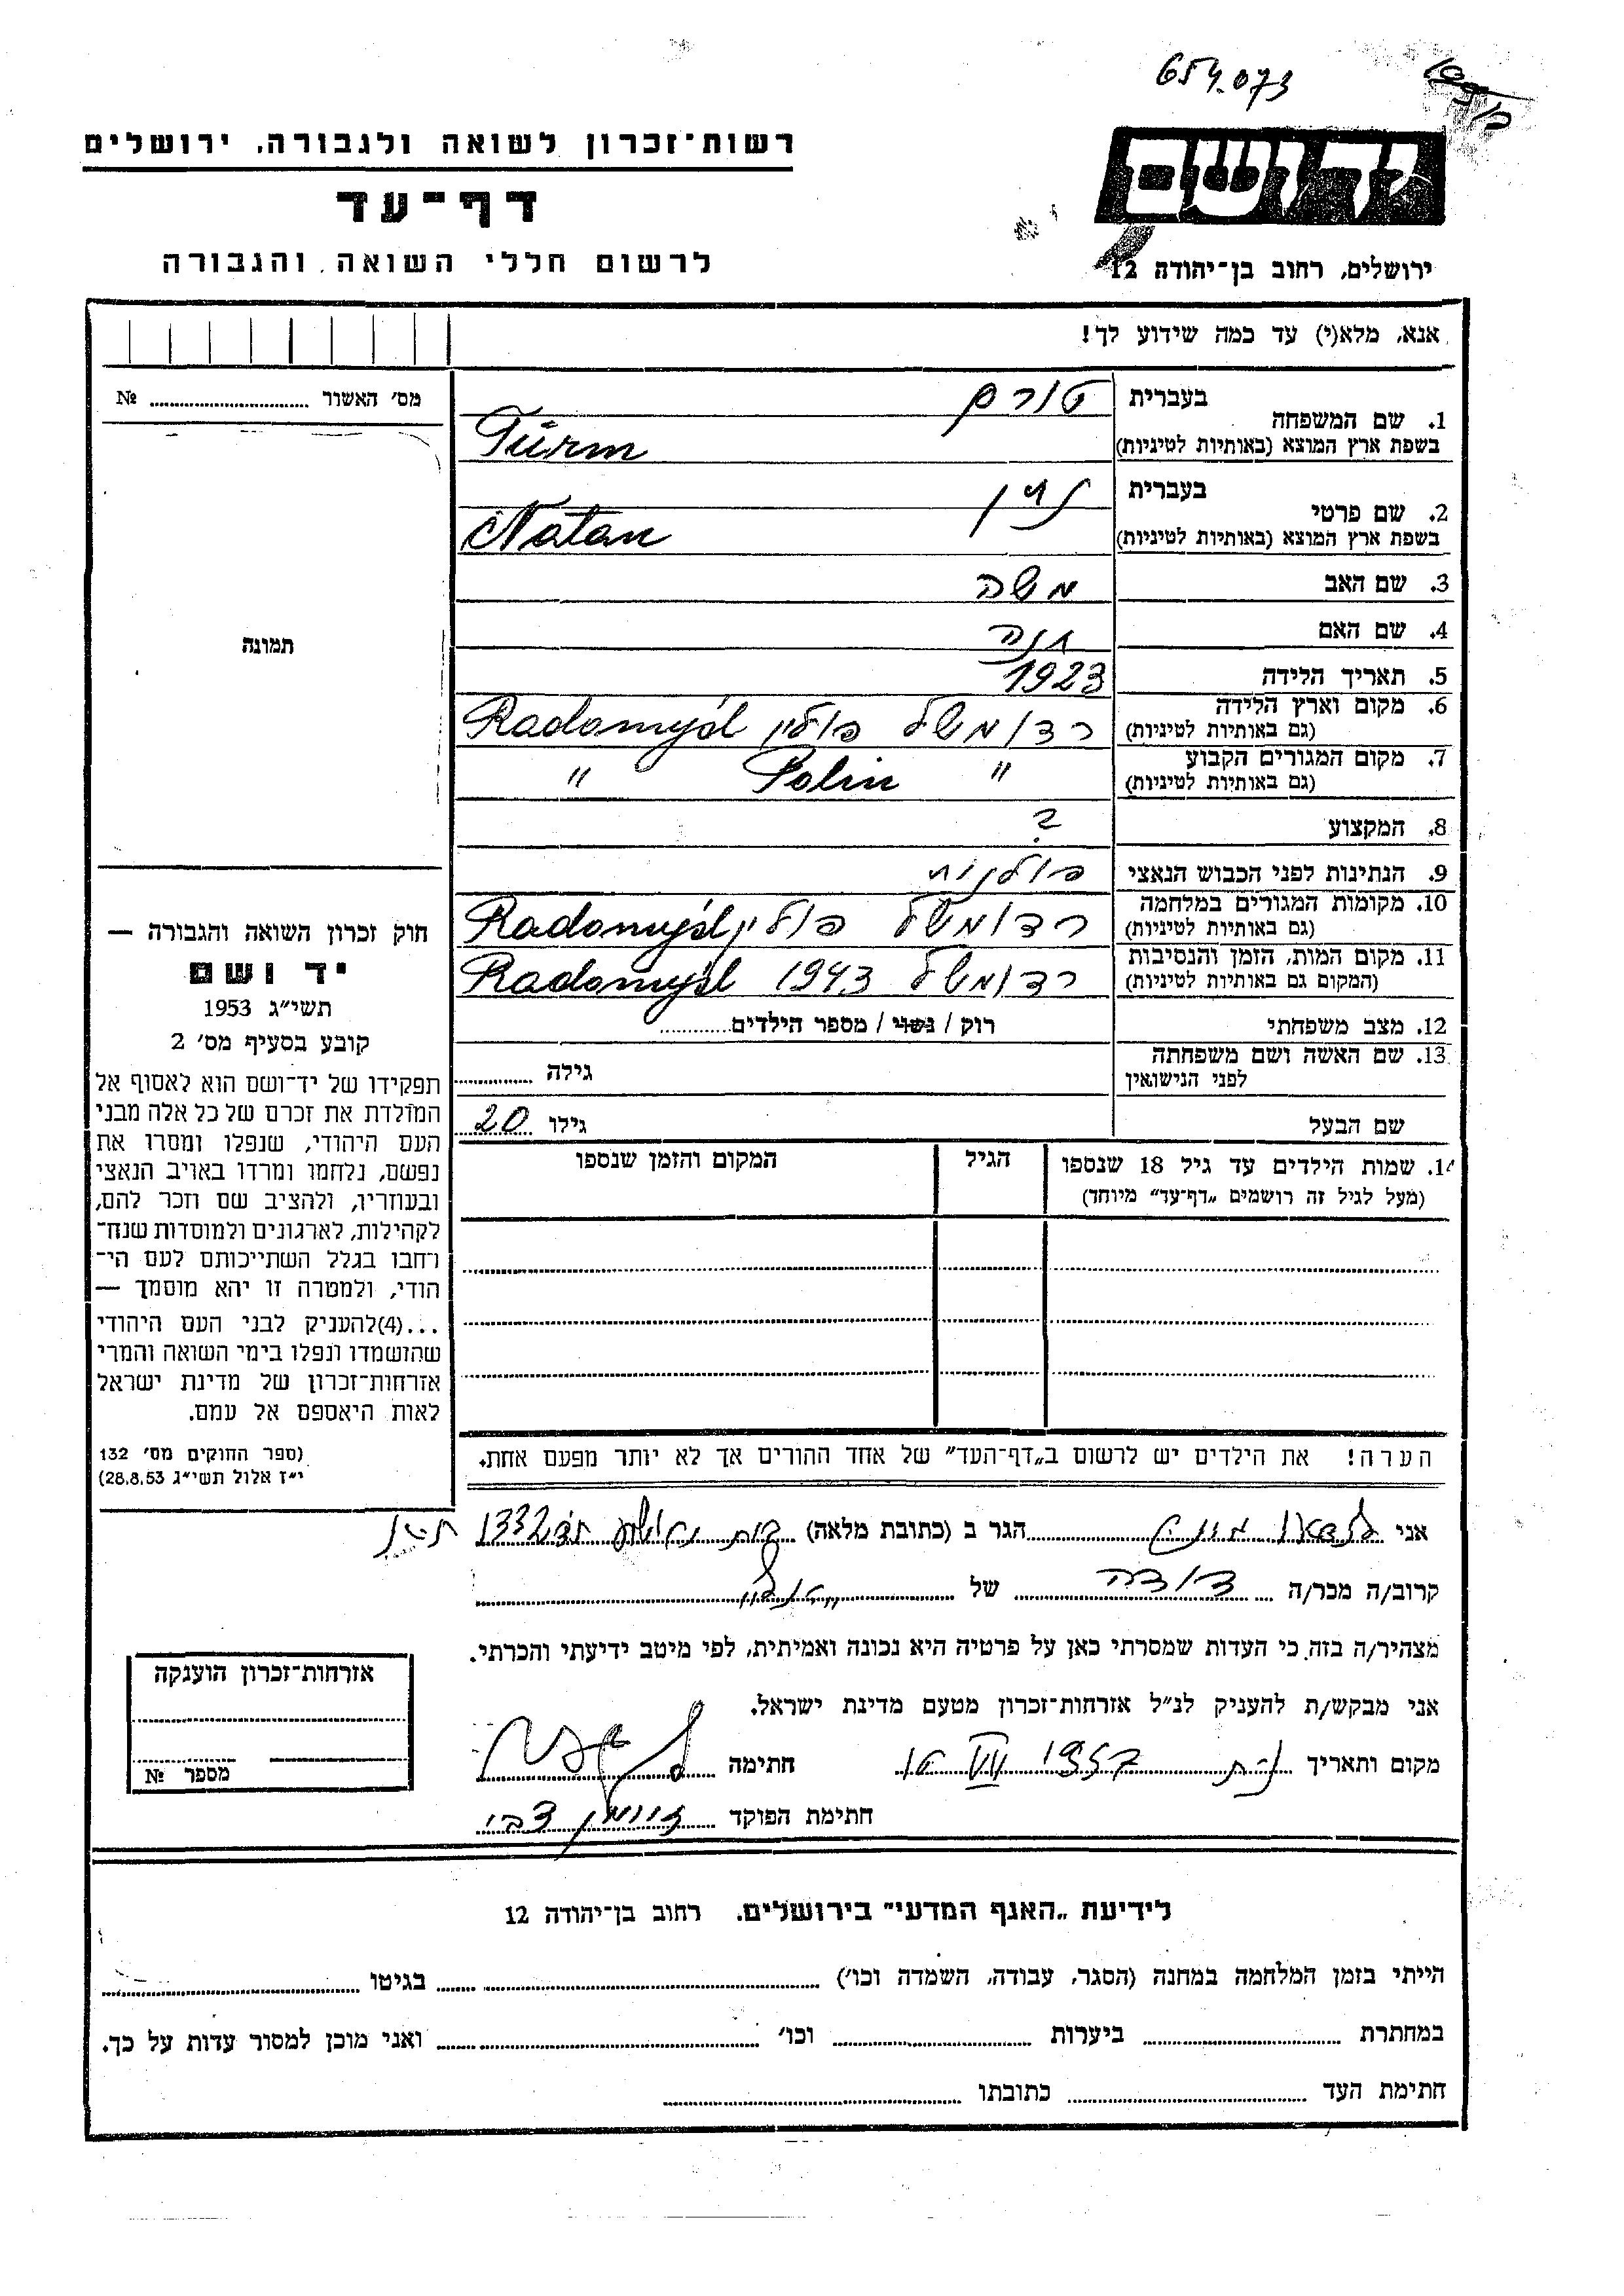 654.073
יד ושם
ירושלים, רחוב בן־יהודה 12
רשות־זכרון לשואה ולגבורה, ירושלים
דף־עד
לרשום חללי השואה והגבורה
אנא, מלא(י) עד כמה שידוע לך!
מס׳ האשור № ....................
1. שם המשפחה בעברית טורם
בשפת ארץ המוצא (באותיות לטיניות) Türm
2. שם פרטי בעברית נתן
בשפת ארץ המוצא (באותיות לטיניות) Natan
3. שם האב משה
4. שם האם חנה
5. תאריך הלידה 1923
6. מקום וארץ הלידה (גם באותיות לטיניות) רדומשל פולין Radomyśl
7. מקום המגורים הקבוע (גם באותיות לטיניות) " Polin "
8. המקצוע ?
9. הנתינות לפני הכבוש הנאצי פולנית
10. מקומות המגורים במלחמה (גם באותיות לטיניות) רדומשל פולין Radomyśl
11. מקום המות, הזמן והנסיבות (המקום גם באותיות לטיניות) רדומשל 1943 Radomyśl
12. מצב משפחתי רוק / נשוי / מספר הילדים............
13. שם האשה ושם משפחתה לפני הנישואין גילה ............
שם הבעל גילו 20
14. שמות הילדים עד גיל 18 שנספו (מעל לגיל זה רושמים „דף־עד״ מיוחד) הגיל המקום והזמן שנספו
הערה! את הילדים יש לרשום ב„דף־העד״ של אחד ההורים אך לא יותר מפעם אחת.
תמונה
חוק זכרון השואה והגבורה —
יד ושם
תשי״ג 1953
קובע בסעיף מס׳ 2
תפקידו של יד־ושם הוא לאסוף אל
המולדת את זכרם של כל אלה מבני
העם היהודי, שנפלו ומסרו את
נפשם, נלחמו ומרדו באויב הנאצי
ובעוזריו, ולהציב שם וזכר להם,
לקהילות, לארגונים ולמוסדות שנח־
רחבו בגלל השתייכותם לעם הי־
הודי, ולמטרה זו יהא מוסמך —
...(4)להעניק לבני העם היהודי
שהושמדו ונפלו בימי השואה והמרי
אזרחות־זכרון של מדינת ישראל
לאות היאספם אל עמם.
(ספר החוקים מס׳ 132
י״ז אלול תשי״ג 28.8.53)
אני לנדאו הגר ב (כתובת מלאה)
קרוב/ה מכר/ה דודה של
מצהיר/ה בזה כי העדות שמסרתי כאן על פרטיה היא נכונה ואמיתית, לפי מיטב ידיעתי והכרתי.
אני מבקש/ת להעניק לנ״ל אזרחות־זכרון מטעם מדינת ישראל.
מקום ותאריך חתימה
חתימת הפוקד
אזרחות־זכרון הוענקה
מספר №
לידיעת „האגף המדעי״ בירושלים. רחוב בן־יהודה 12
הייתי בזמן המלחמה במחנה (הסגר, עבודה, השמדה וכו׳) .................... בגיטו ....................
במחתרת .................... ביערות .................... וכו׳ .................... ואני מוכן למסור עדות על כך.
חתימת העד .................... כתובתו ....................